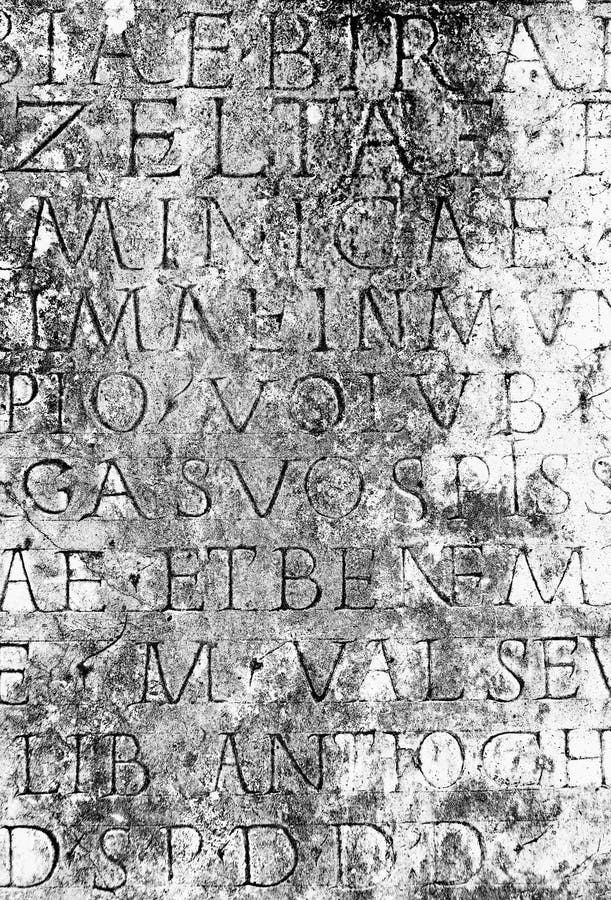 BIAEBIRAE
ZELTAE E
MINICAE
IMAEINMVN
PIO VOLVB
GASVOSPISS
AE ETBENEM
E M VALSEV
LIB ANTIOCH
D S P D D D